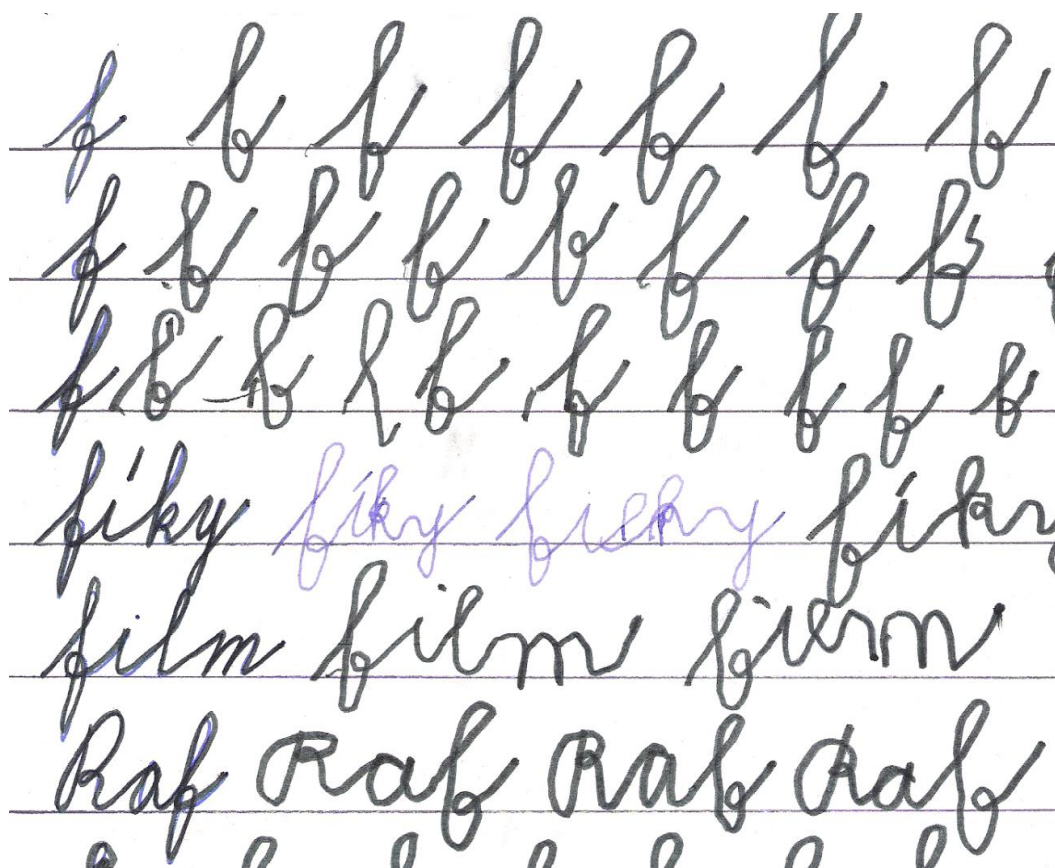 f f f f f f f
f f f f f f f f
f f f f f f f f f
fíky fíky fieky fíky
film film film
Raf Raf Raf Raf